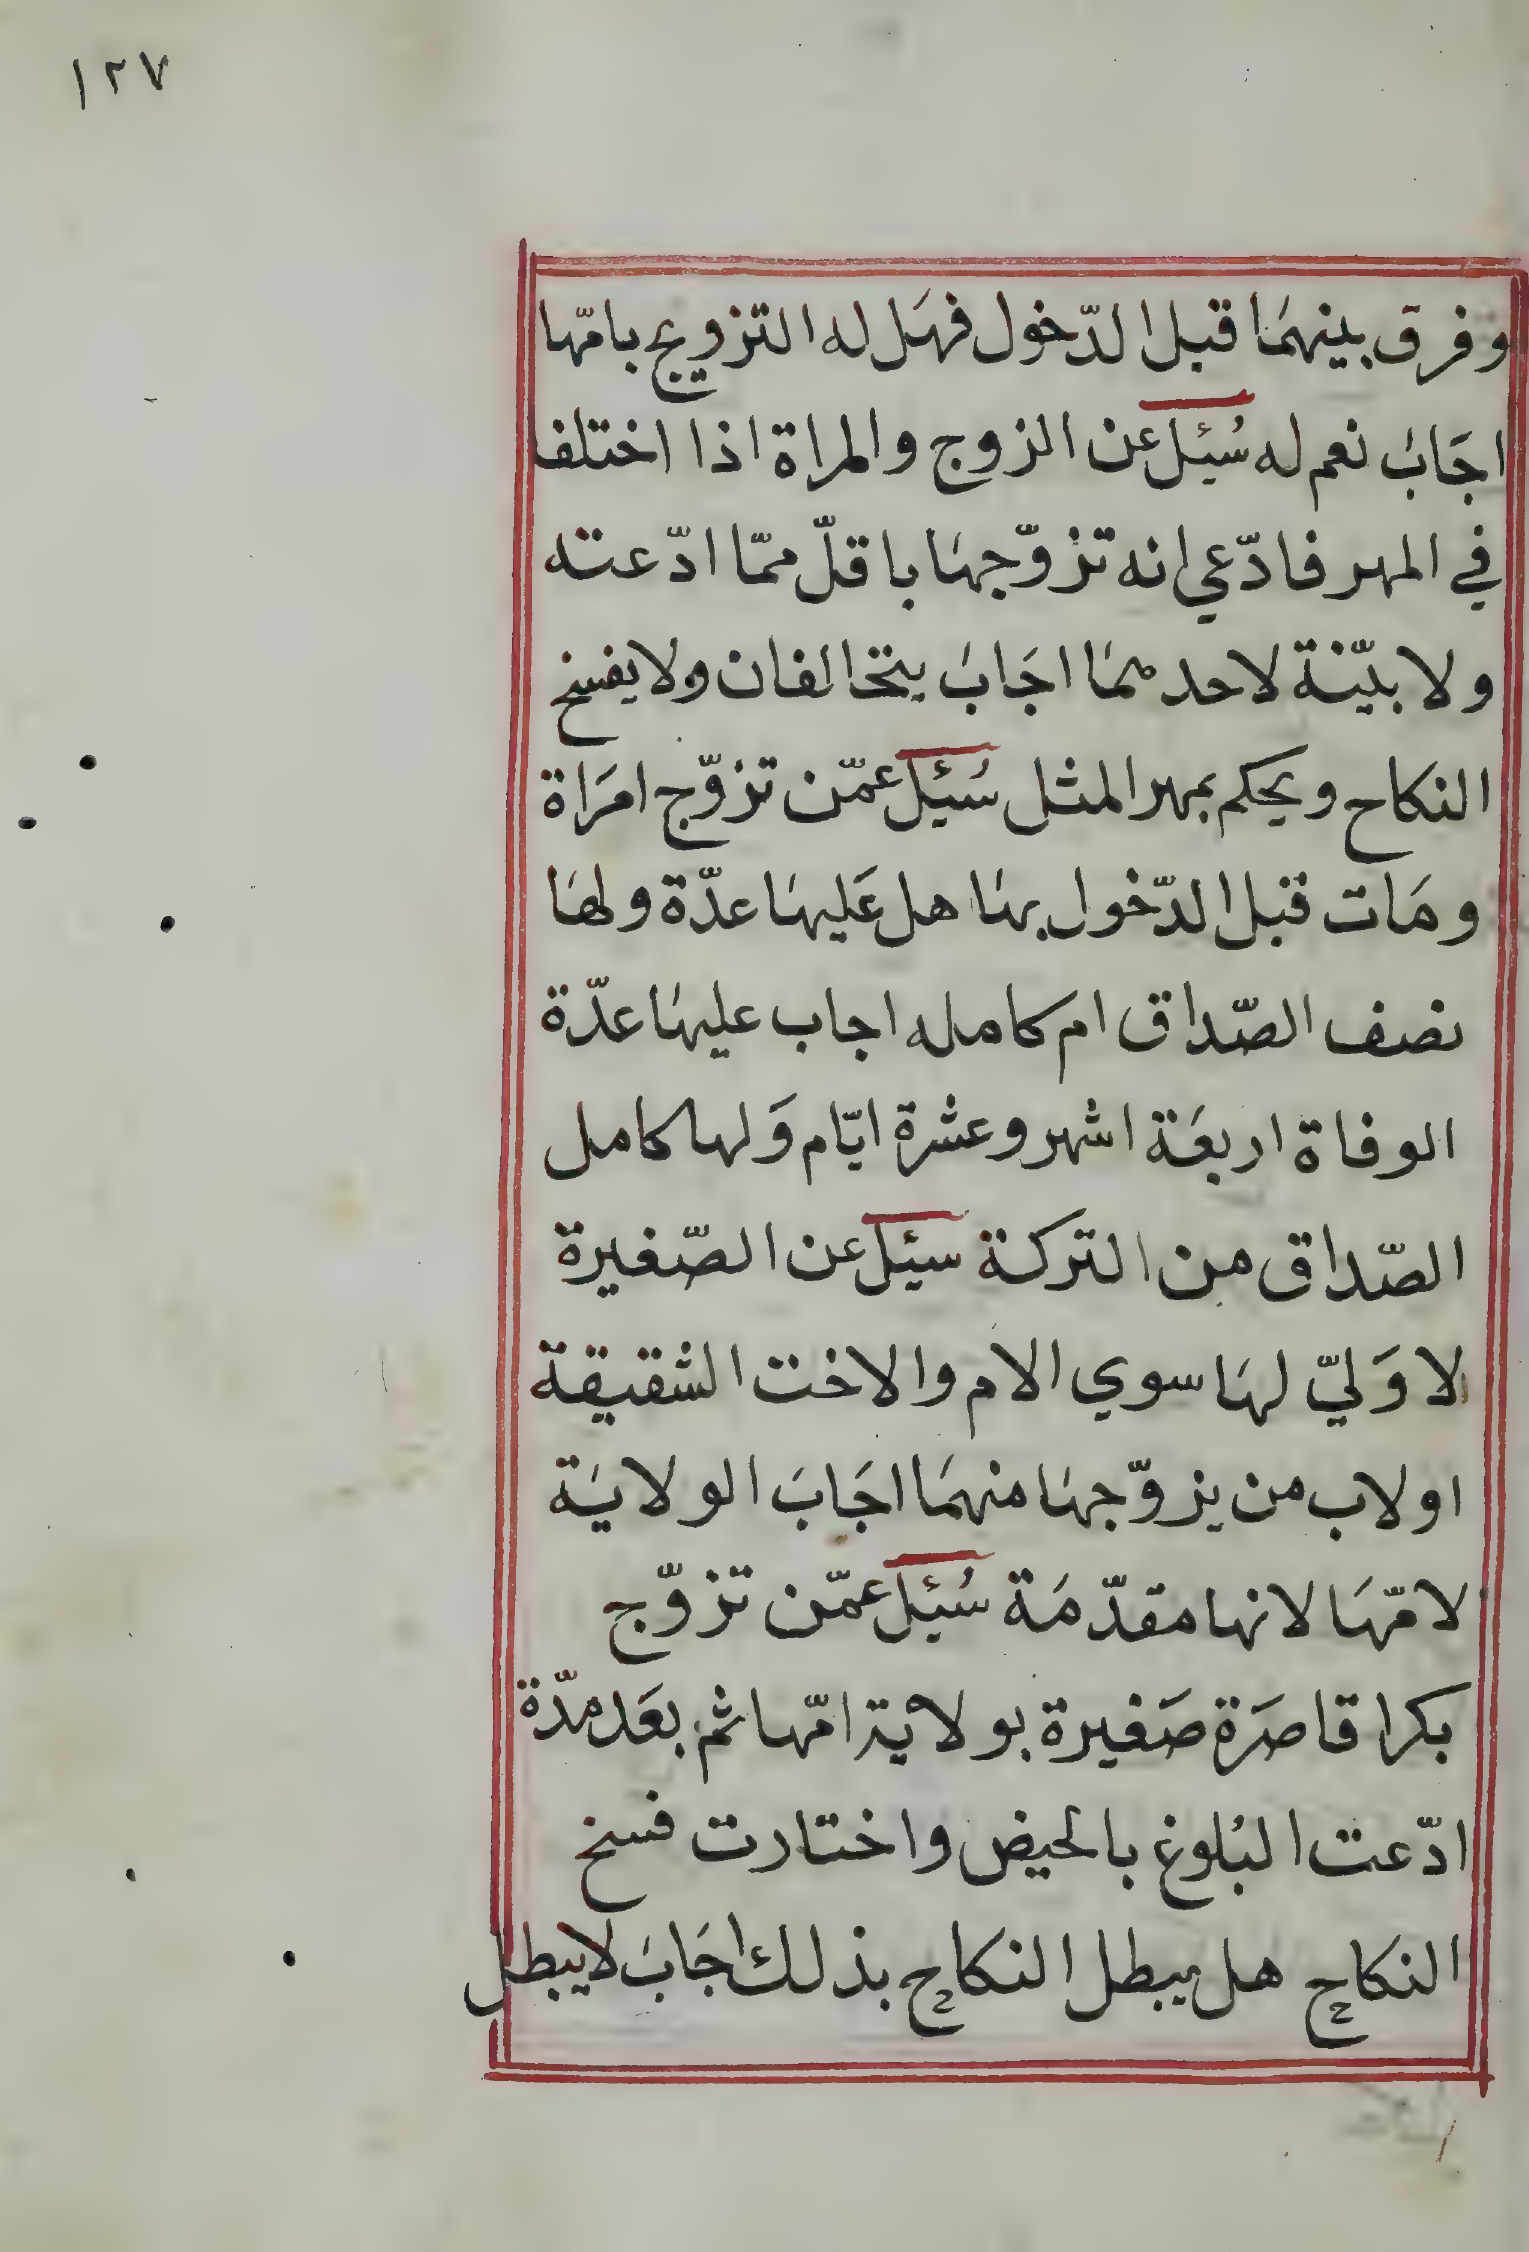 ١٢٧
وفرق بينهمَا قبل الدّخول فهَل له التزويج بامّها
اجَابَ نعم له سُئِل عن الزوج والمراة اذا اختلفا
في المهر فادّعي انه تزوّجهَا باقلّ ممّا ادّعته
ولا بيّنة لاحد منهمَا اجَابَ يتحالفان ولا يفسخ
النكاح ويحكم بمهر المثل سُئِل عمّن تزوّج امرَاة
ومَات قبل الدّخول بهَا هل عَليهَا عدّة ولهَا
نصف الصّداق ام كامله اجاب عليهَا عدّة
الوفاة اربعَة اشهر وعشرة ايّام وَلها كامل
الصّداق من التركة سئِل عن الصّغيرة
لا وَليّ لهَا سوي الام والاخت الشقيقة
او لاب من يزوّجهَا منهمَا اجَابَ الولايَة
لامّهَا لانها مقدّمَة سُئِل عمّن تزوّج
بكرا قاصَرة صَغيرة بولاية امّها ثم بعَد مدّة
ادّعت البُلوغ بالحيض واختارت فسخ
النكاح هل يبطل النكاح بذلك اجَابَ لا يبطل